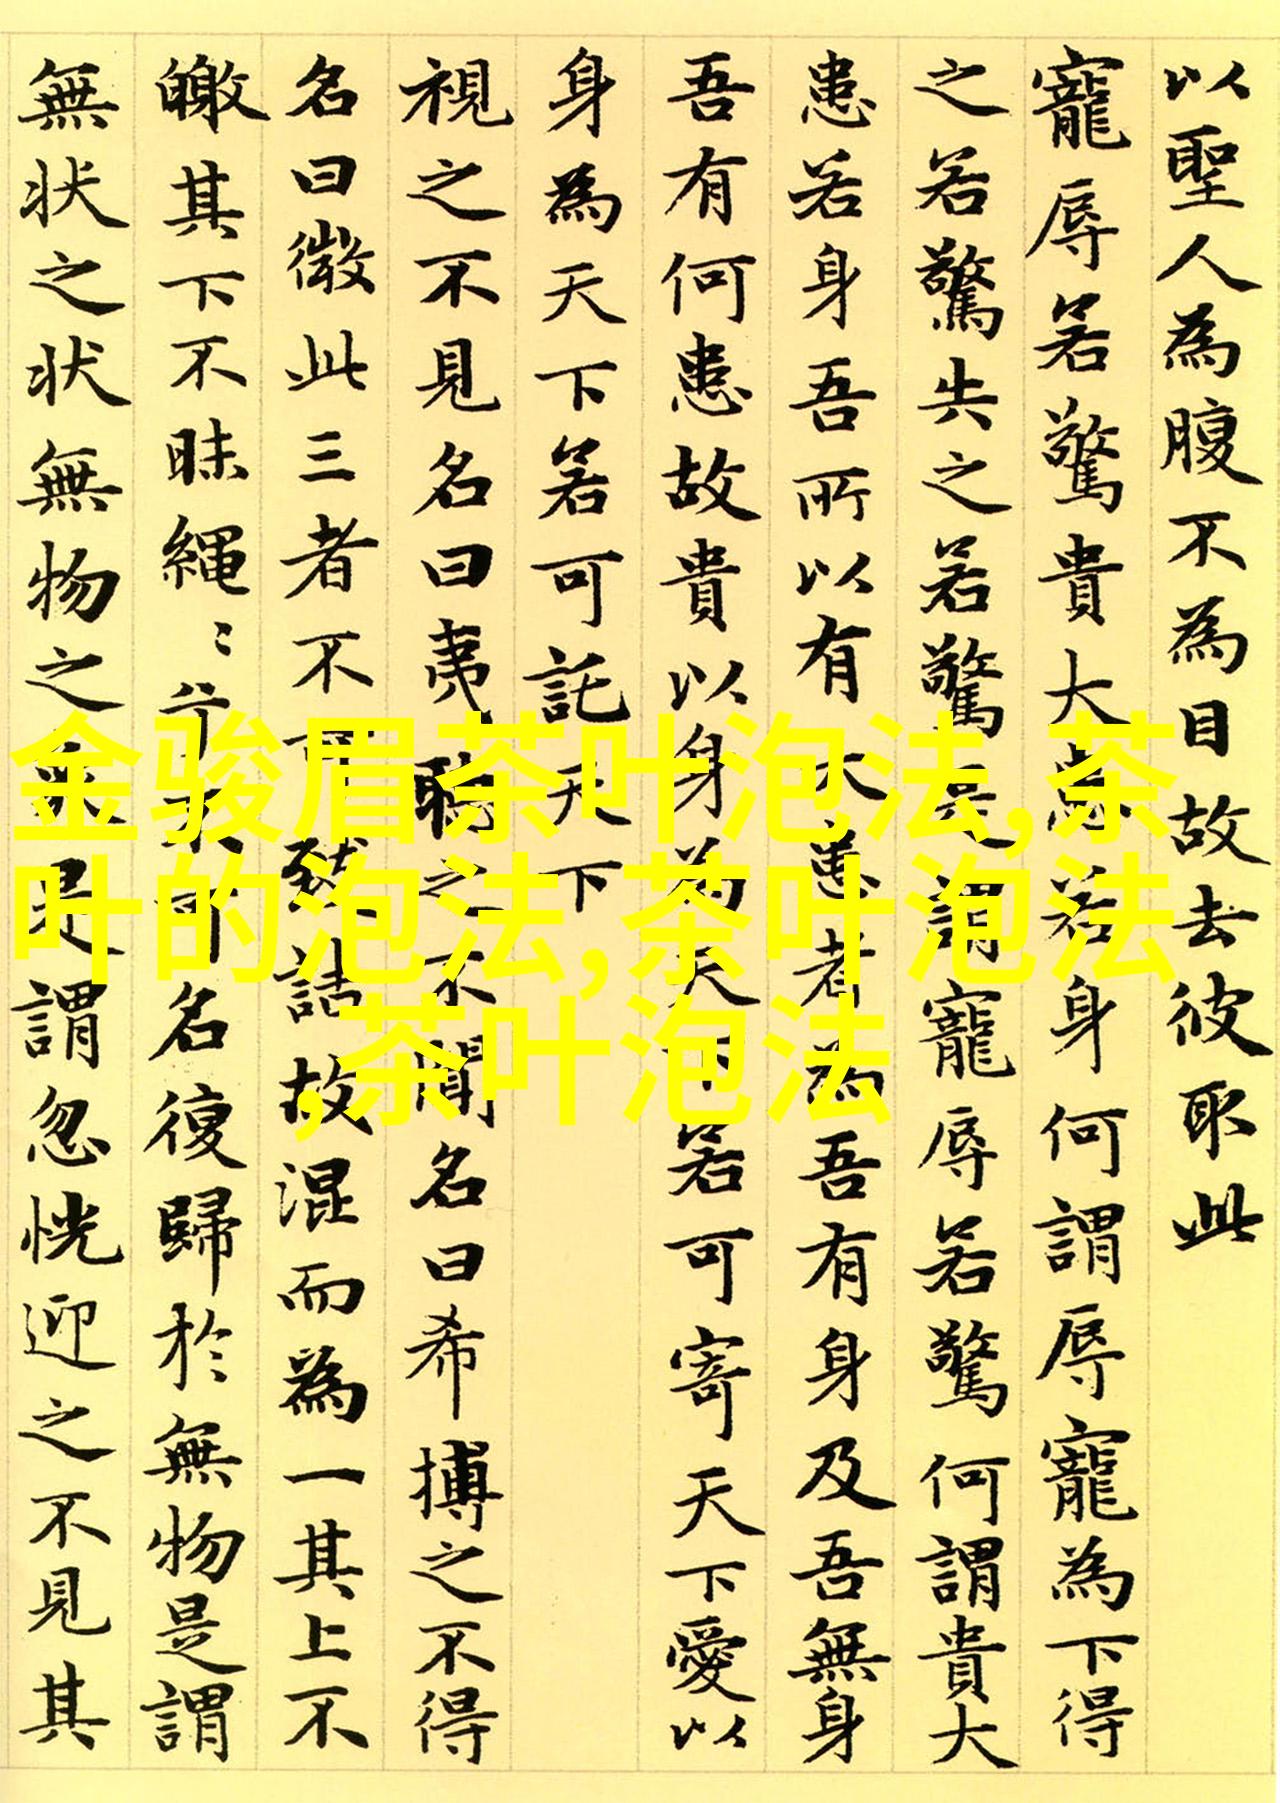 以聖人為腹不為目故去彼取此
寵辱若驚貴大患若身何謂辱寵為下得
之若驚失之若驚是謂寵辱若驚何謂貴大
患若身吾所以有大患者為吾有身及吾無身
吾有何患故貴以身為天下若可寄天下愛以
身為天下若可託天下
視之不見名曰夷聽之不聞名曰希搏之不得
名曰微此三者不可致詰故混而為一其上不
皦其下不昧繩〻兮不可名復歸於無物是謂
無状之状無物之象是謂忽恍迎之不見其
金骏眉茶叶泡法,茶
叶的泡法,茶叶泡法
,茶叶泡法